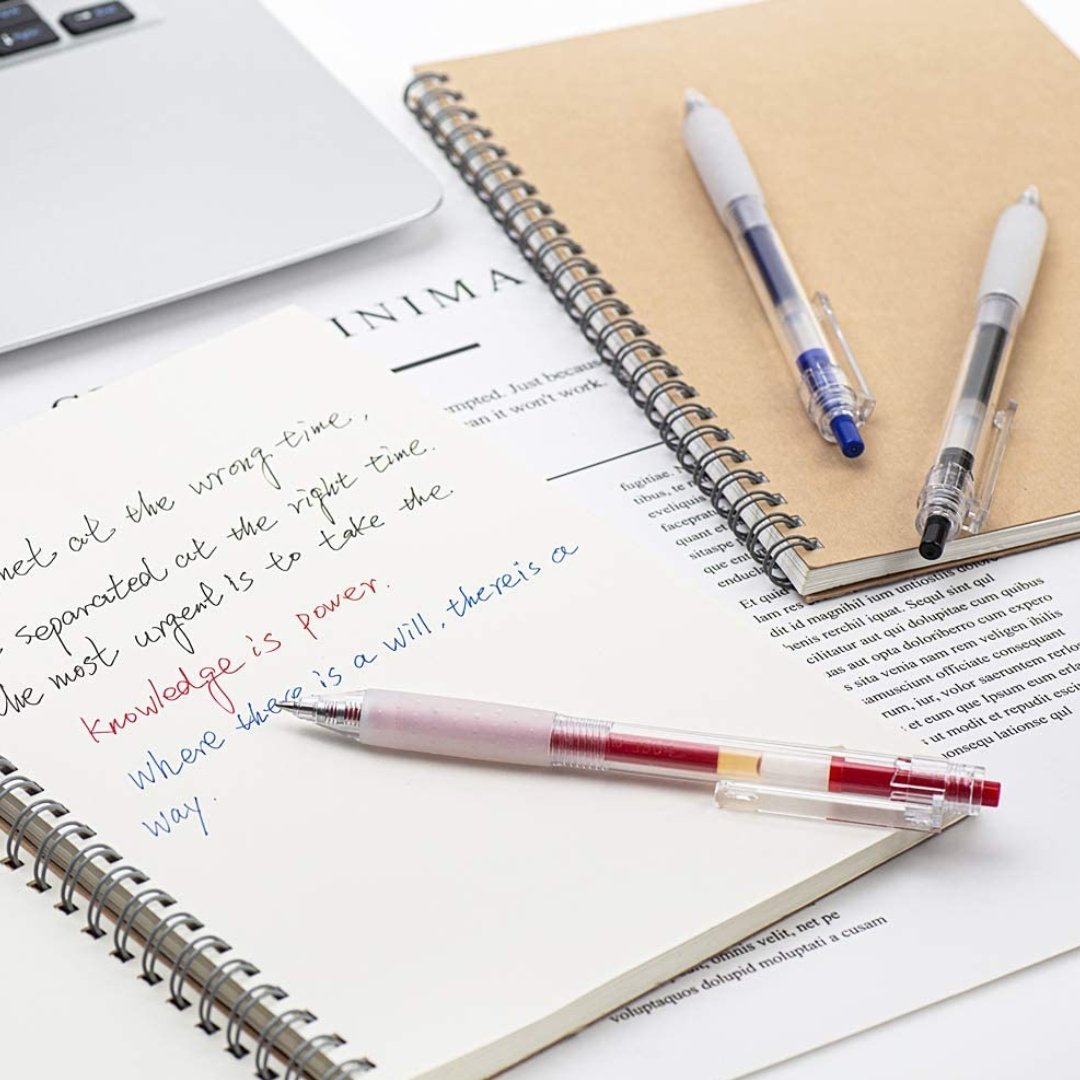 INIMA
mpted. Just becaus
an it won't work.
net at the wrong time,
separated at the right time.
the most urgent is to take the
knowledge is power.
where there is a will, thereis a
way.
fugitiae,
tibus, te
eveliquis
faceprat
quant et
sitaspe
que ent
enduci
Et quid
lam res
dit id magnihil ium untiostis dolore
henis rerchil iquat. Sequl sint qui
cilitatur aut qui dolupitae cum quibus
as aut opta doloriberro cum expero
s sita venia nam rem veligen ihilis
amusciunt officiate consequant
rum, iur, volor saeruntem rerlo
et eum que Ipsum eum earla
ut modit et repudit esci
onsequ lationse qui
omnis velit, net pe
voluptaquos dolupid moluptati a cusam